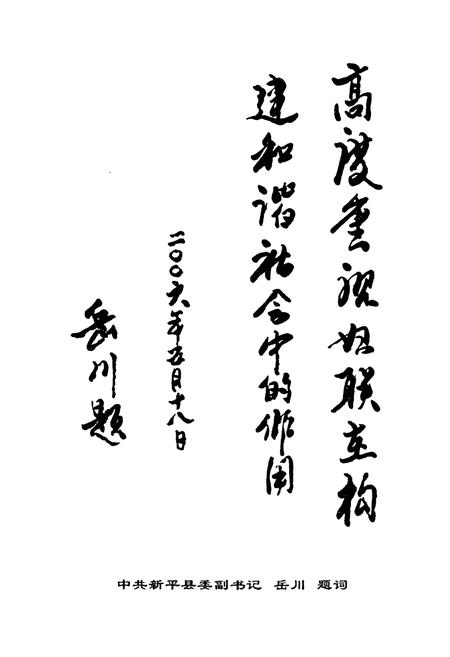 高度重视妇联在构
建和谐社会中的作用
二〇〇六年五月十八日
岳川题
中共新平县委副书记 岳川 题词